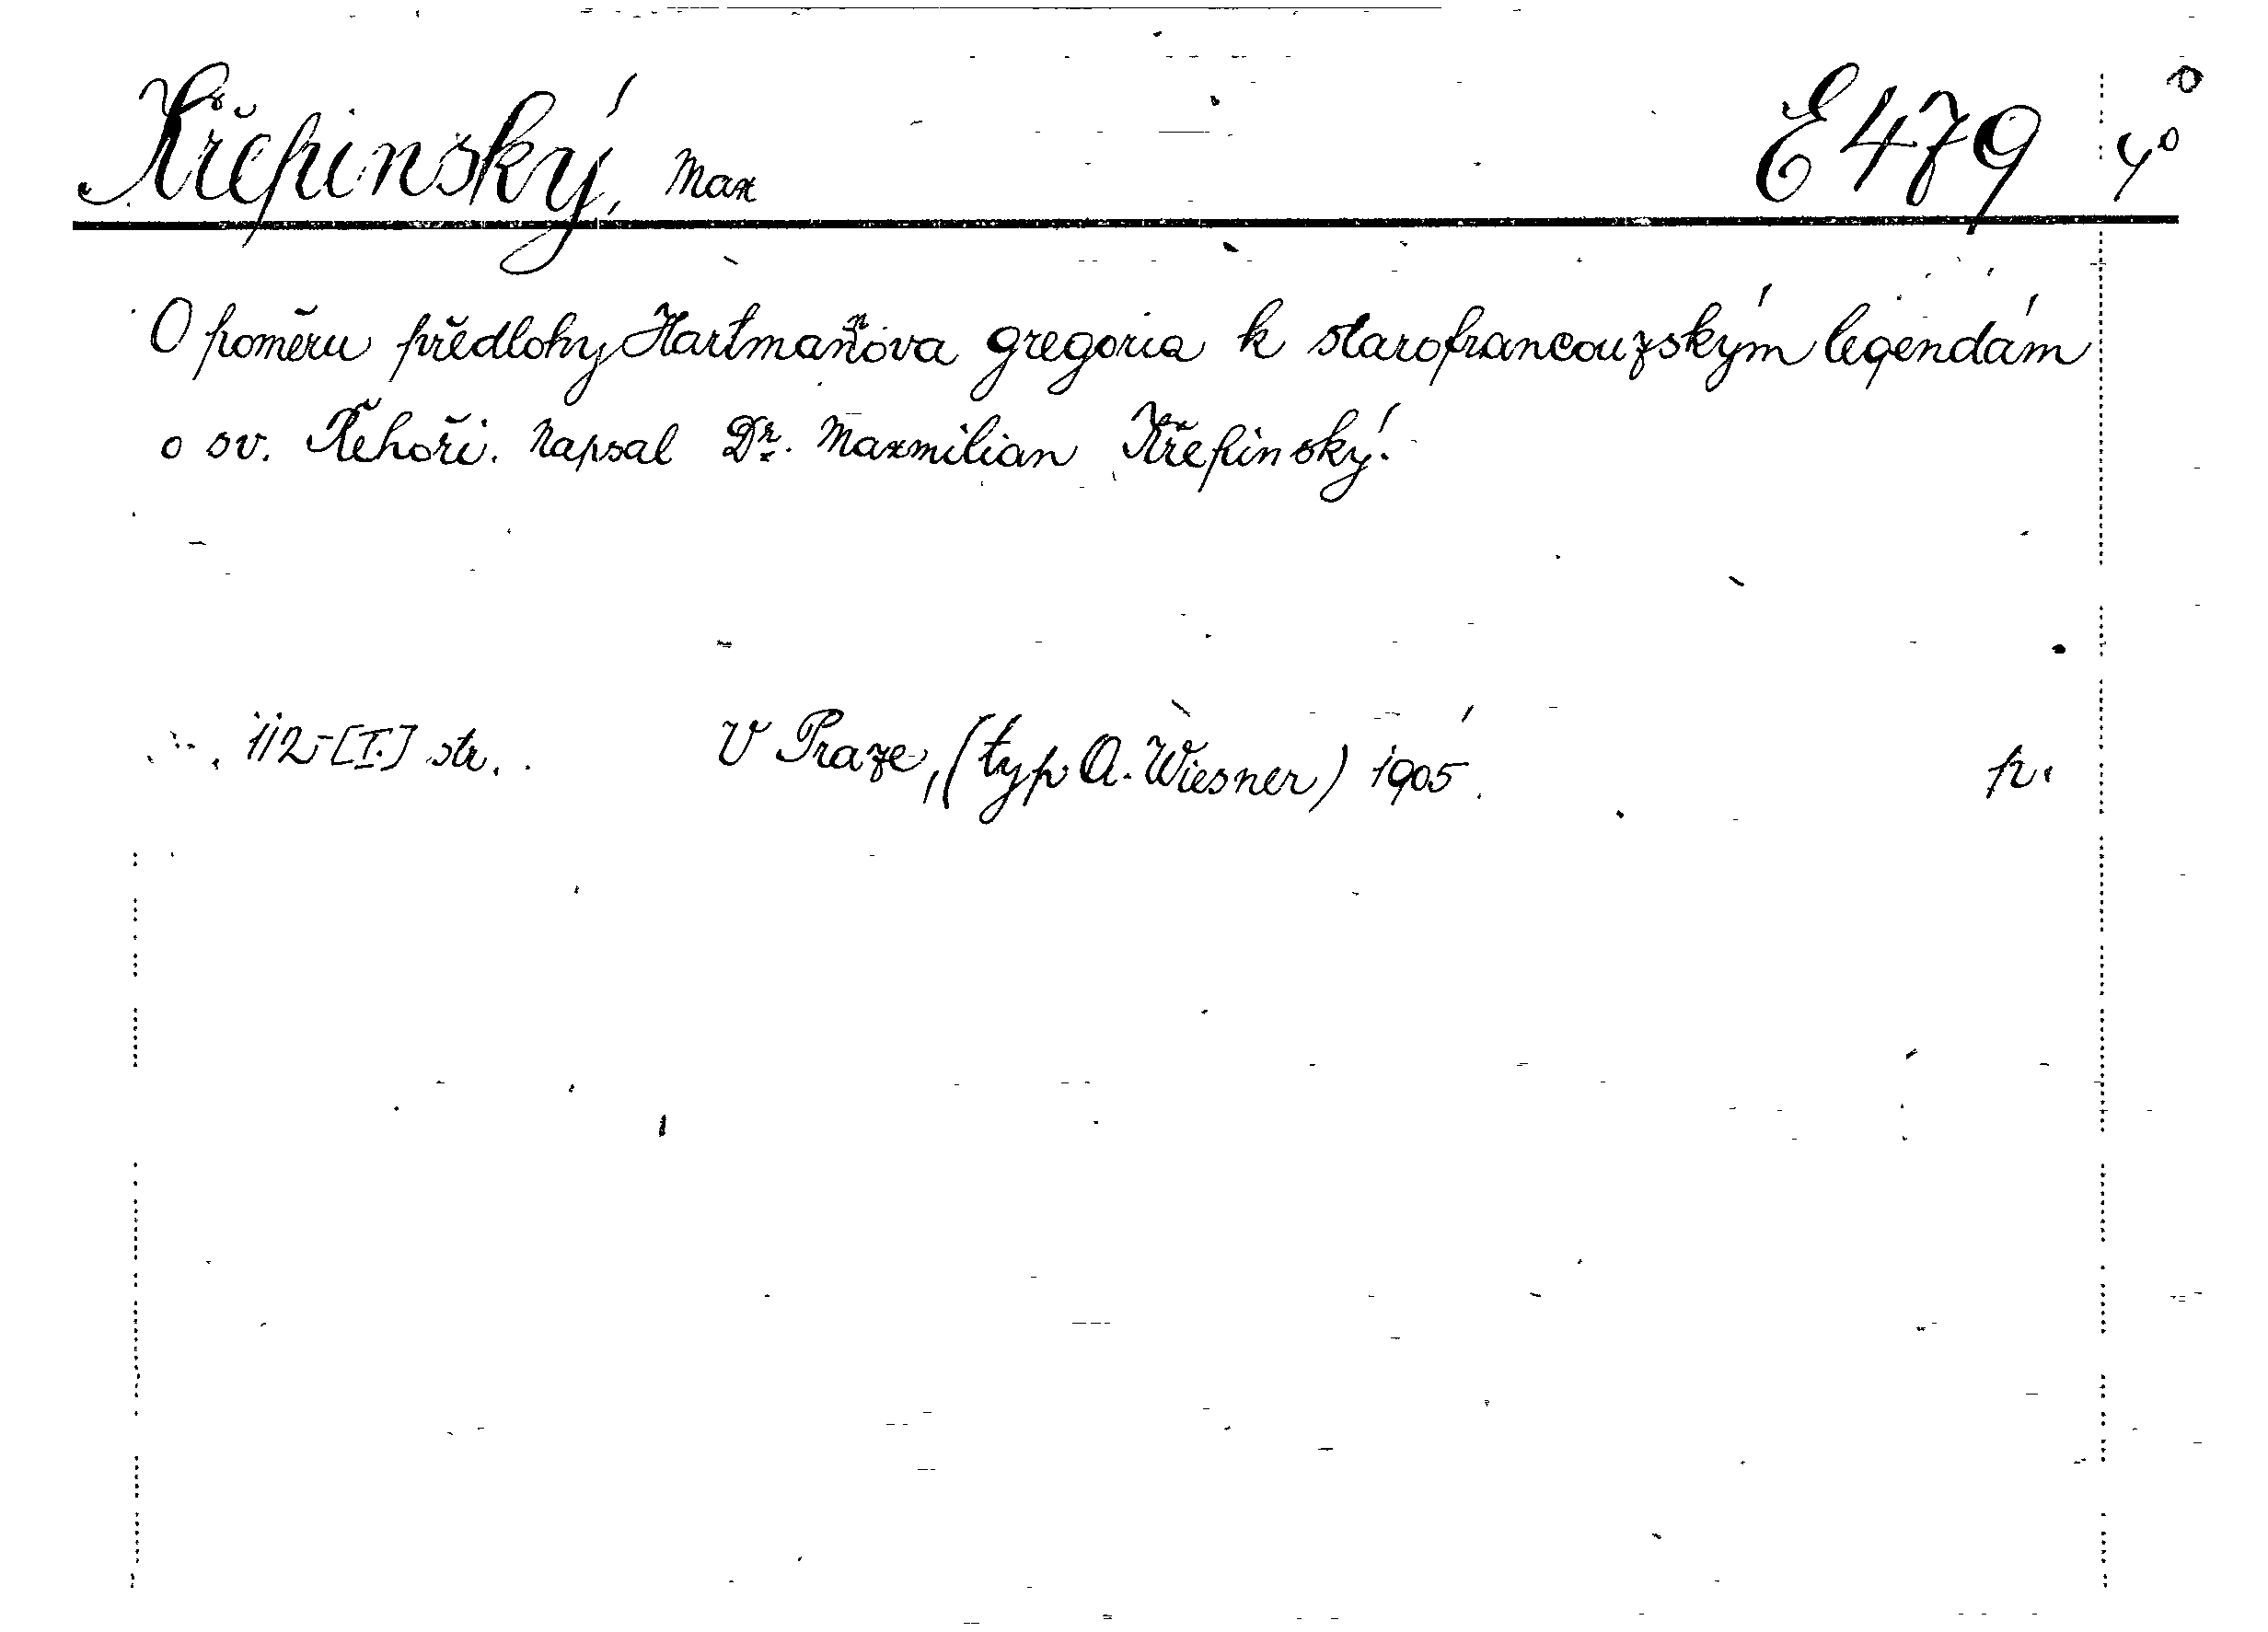 Křepinský, Max E 479 4°
O poměru předlohy Hartmannova Gregoria k starofrancouzským legendám
o sv. Řehoři. Napsal Dr. Maxmilian Křepinský.
112-[I.] str. V Praze, (typ. A. Wiesner) 1905. p.